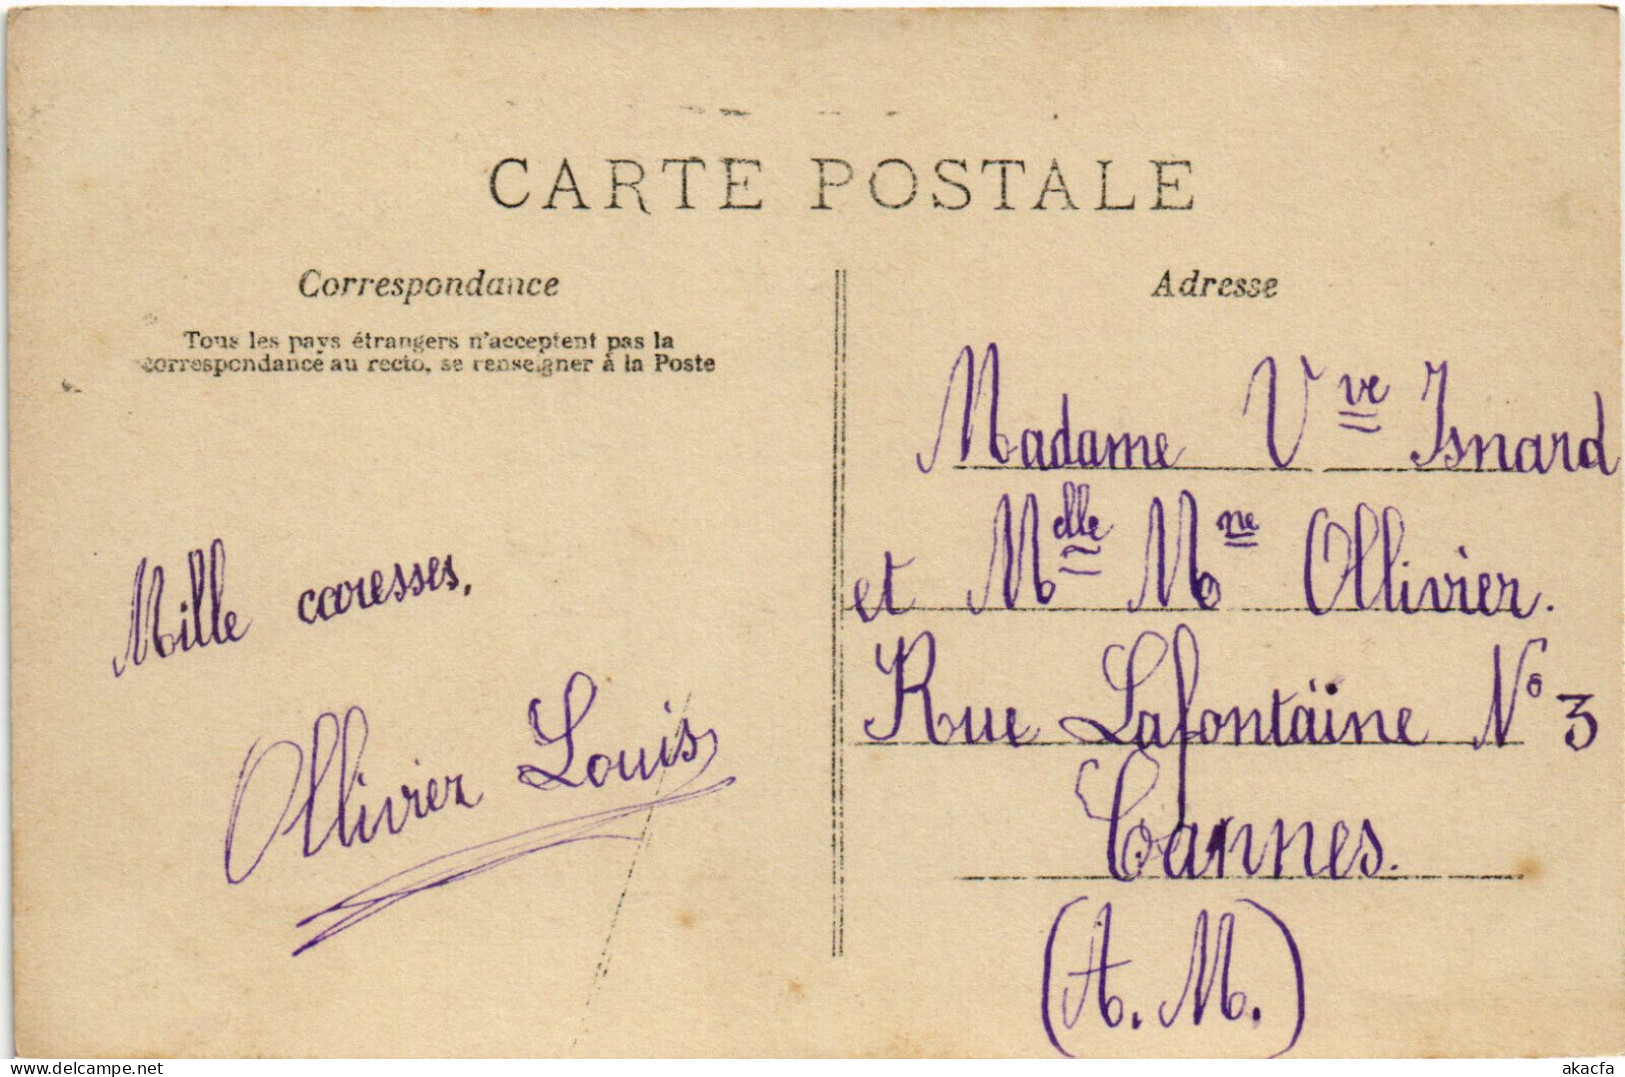 CARTE POSTALE
Correspondance
Tous les pays étrangers n'acceptent pas la
correspondance au recto, se renseigner à la Poste
Mille caresses,
Ollivier Louis
Adresse
Madame Vve Isnard
et Melle Mne Ollivier.
Rue Lafontaine No 3
Cannes.
(A. M.)
delcampe.net
akacfa